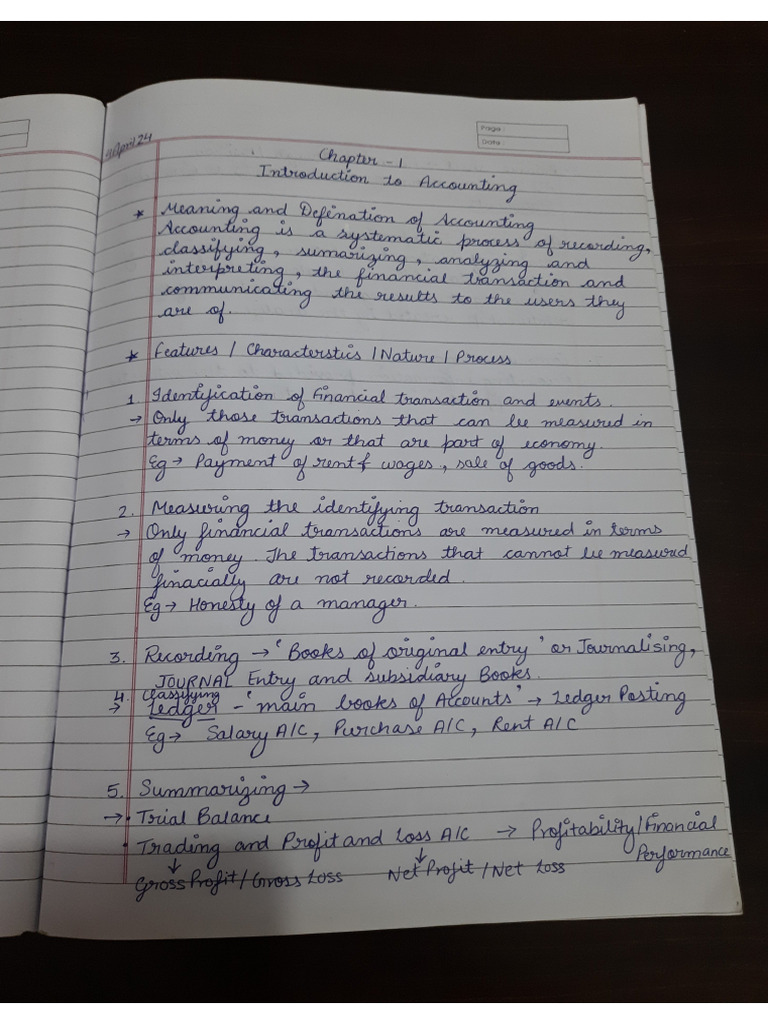 Page :
Date :
4 April 24
Chapter - 1
Introduction to Accounting
* Meaning and Defination of Accounting
Accounting is a systematic process of recording,
classifying, sumarizing, analyzing and
interpreting, the financial transaction and
communicating the results to the users they
are of.
* Features / Characterstics / Nature / Process
1. Identification of Financial transaction and events.
→ Only those transactions that can be measured in
terms of money or that are part of economy.
Eg → Payment of rent & wages, sale of goods.
2. Measuring the identifying transaction
→ Only financial transactions are measured in terms
of money. The transactions that cannot be measured
finacially are not recorded.
Eg → Honesty of a manager.
3. Recording → 'Books of original entry' or Journalising,
JOURNAL Entry and subsidiary Books.
4. Classifying
→ Ledger - 'main books of Accounts' → Ledger Posting
Eg → Salary A/C, Purchase A/C, Rent A/C
5. Summarizing →
→ • Trial Balance
• Trading and Profit and Loss A/C → Profitability / Financial
Performance
↓ ↓
Gross Profit / Gross Loss Net Profit / Net Loss